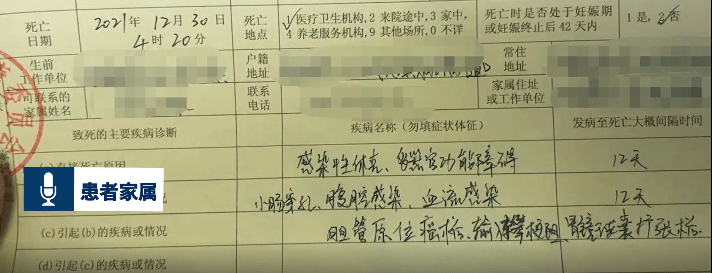 死亡日期 2021年12月30日 4时20分 死亡地点 1医疗卫生机构,2来院途中,3家中, 4养老服务机构,9其他场所,0不详 死亡时是否处于妊娠期或妊娠终止后42天内 1是,2否
生前工作单位 户籍地址 常住地址
可联系的家属姓名 联系电话 家属住址或工作单位
致死的主要疾病诊断 疾病名称(勿填症状体征) 发病至死亡大概间隔时间
直接死亡原因 感染性休克、多器官功能障碍 12天
患者家属
小肠穿孔、腹腔感染、血流感染 12天
(c)引起(b)的疾病或情况 胆管原位癌
(d)引起(c)的疾病或情况